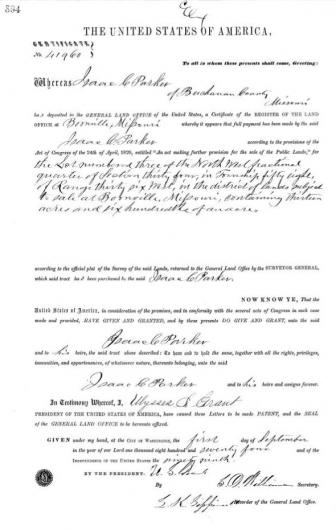 394
THE UNITED STATES OF AMERICA,
CERTIFICATE
No. 41960
To all to whom these presents shall come, Greeting:
Whereas Isaac C Parker
of Buchanan County
Missouri
has deposited in the GENERAL LAND OFFICE of the United States, a Certificate of the REGISTER OF THE LAND
OFFICE at Boonville, Missouri whereby it appears that full payment has been made by the said
Isaac C Parker according to the provisions of the
Act of Congress of the 24th of April, 1820, entitled "An Act making further provision for the sale of the Public Lands," for
the Lot numbered three of the North West fractional
quarter of Section thirty four, in Township fifty eight,
of Range thirty six West, in the district of lands subject
to sale at Boonville, Missouri, containing thirteen
acres and six hundredths of an acre
according to the official plat of the Survey of the said Lands, returned to the General Land Office by the SURVEYOR GENERAL,
which said tract has been purchased by the said Isaac C Parker
NOW KNOW YE, That the
United States of America, in consideration of the premises, and in conformity with the several acts of Congress in such case
made and provided, HAVE GIVEN AND GRANTED, and by these presents DO GIVE AND GRANT, unto the said
Isaac C Parker
and to his heirs, the said tract above described: To have and to hold the same, together with all the rights, privileges,
immunities, and appurtenances, of whatsoever nature, thereunto belonging, unto the said
Isaac C Parker and to his heirs and assigns forever.
In Testimony Whereof, I Ulysses S. Grant
PRESIDENT OF THE UNITED STATES OF AMERICA, have caused these Letters to be made PATENT, and the SEAL
of the GENERAL LAND OFFICE to be hereunto affixed.
GIVEN under my hand, at the CITY OF WASHINGTON, the first day of September
in the year of our Lord one thousand eight hundred and seventy four and of the
INDEPENDENCE OF THE UNITED STATES the ninety ninth.
BY THE PRESIDENT: U. S. Grant
By Secretary.
Recorder of the General Land Office.